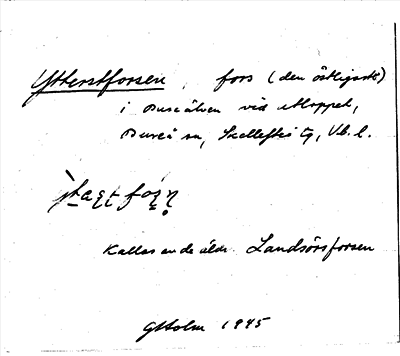 Ytterstforsen, fors (den östligaste)
i Bureälven vid utloppet,
Bureå sn, Skellefteå tg, Vb. l.
Kallas av de äldr. Landsörsforsen
GHolm 1945